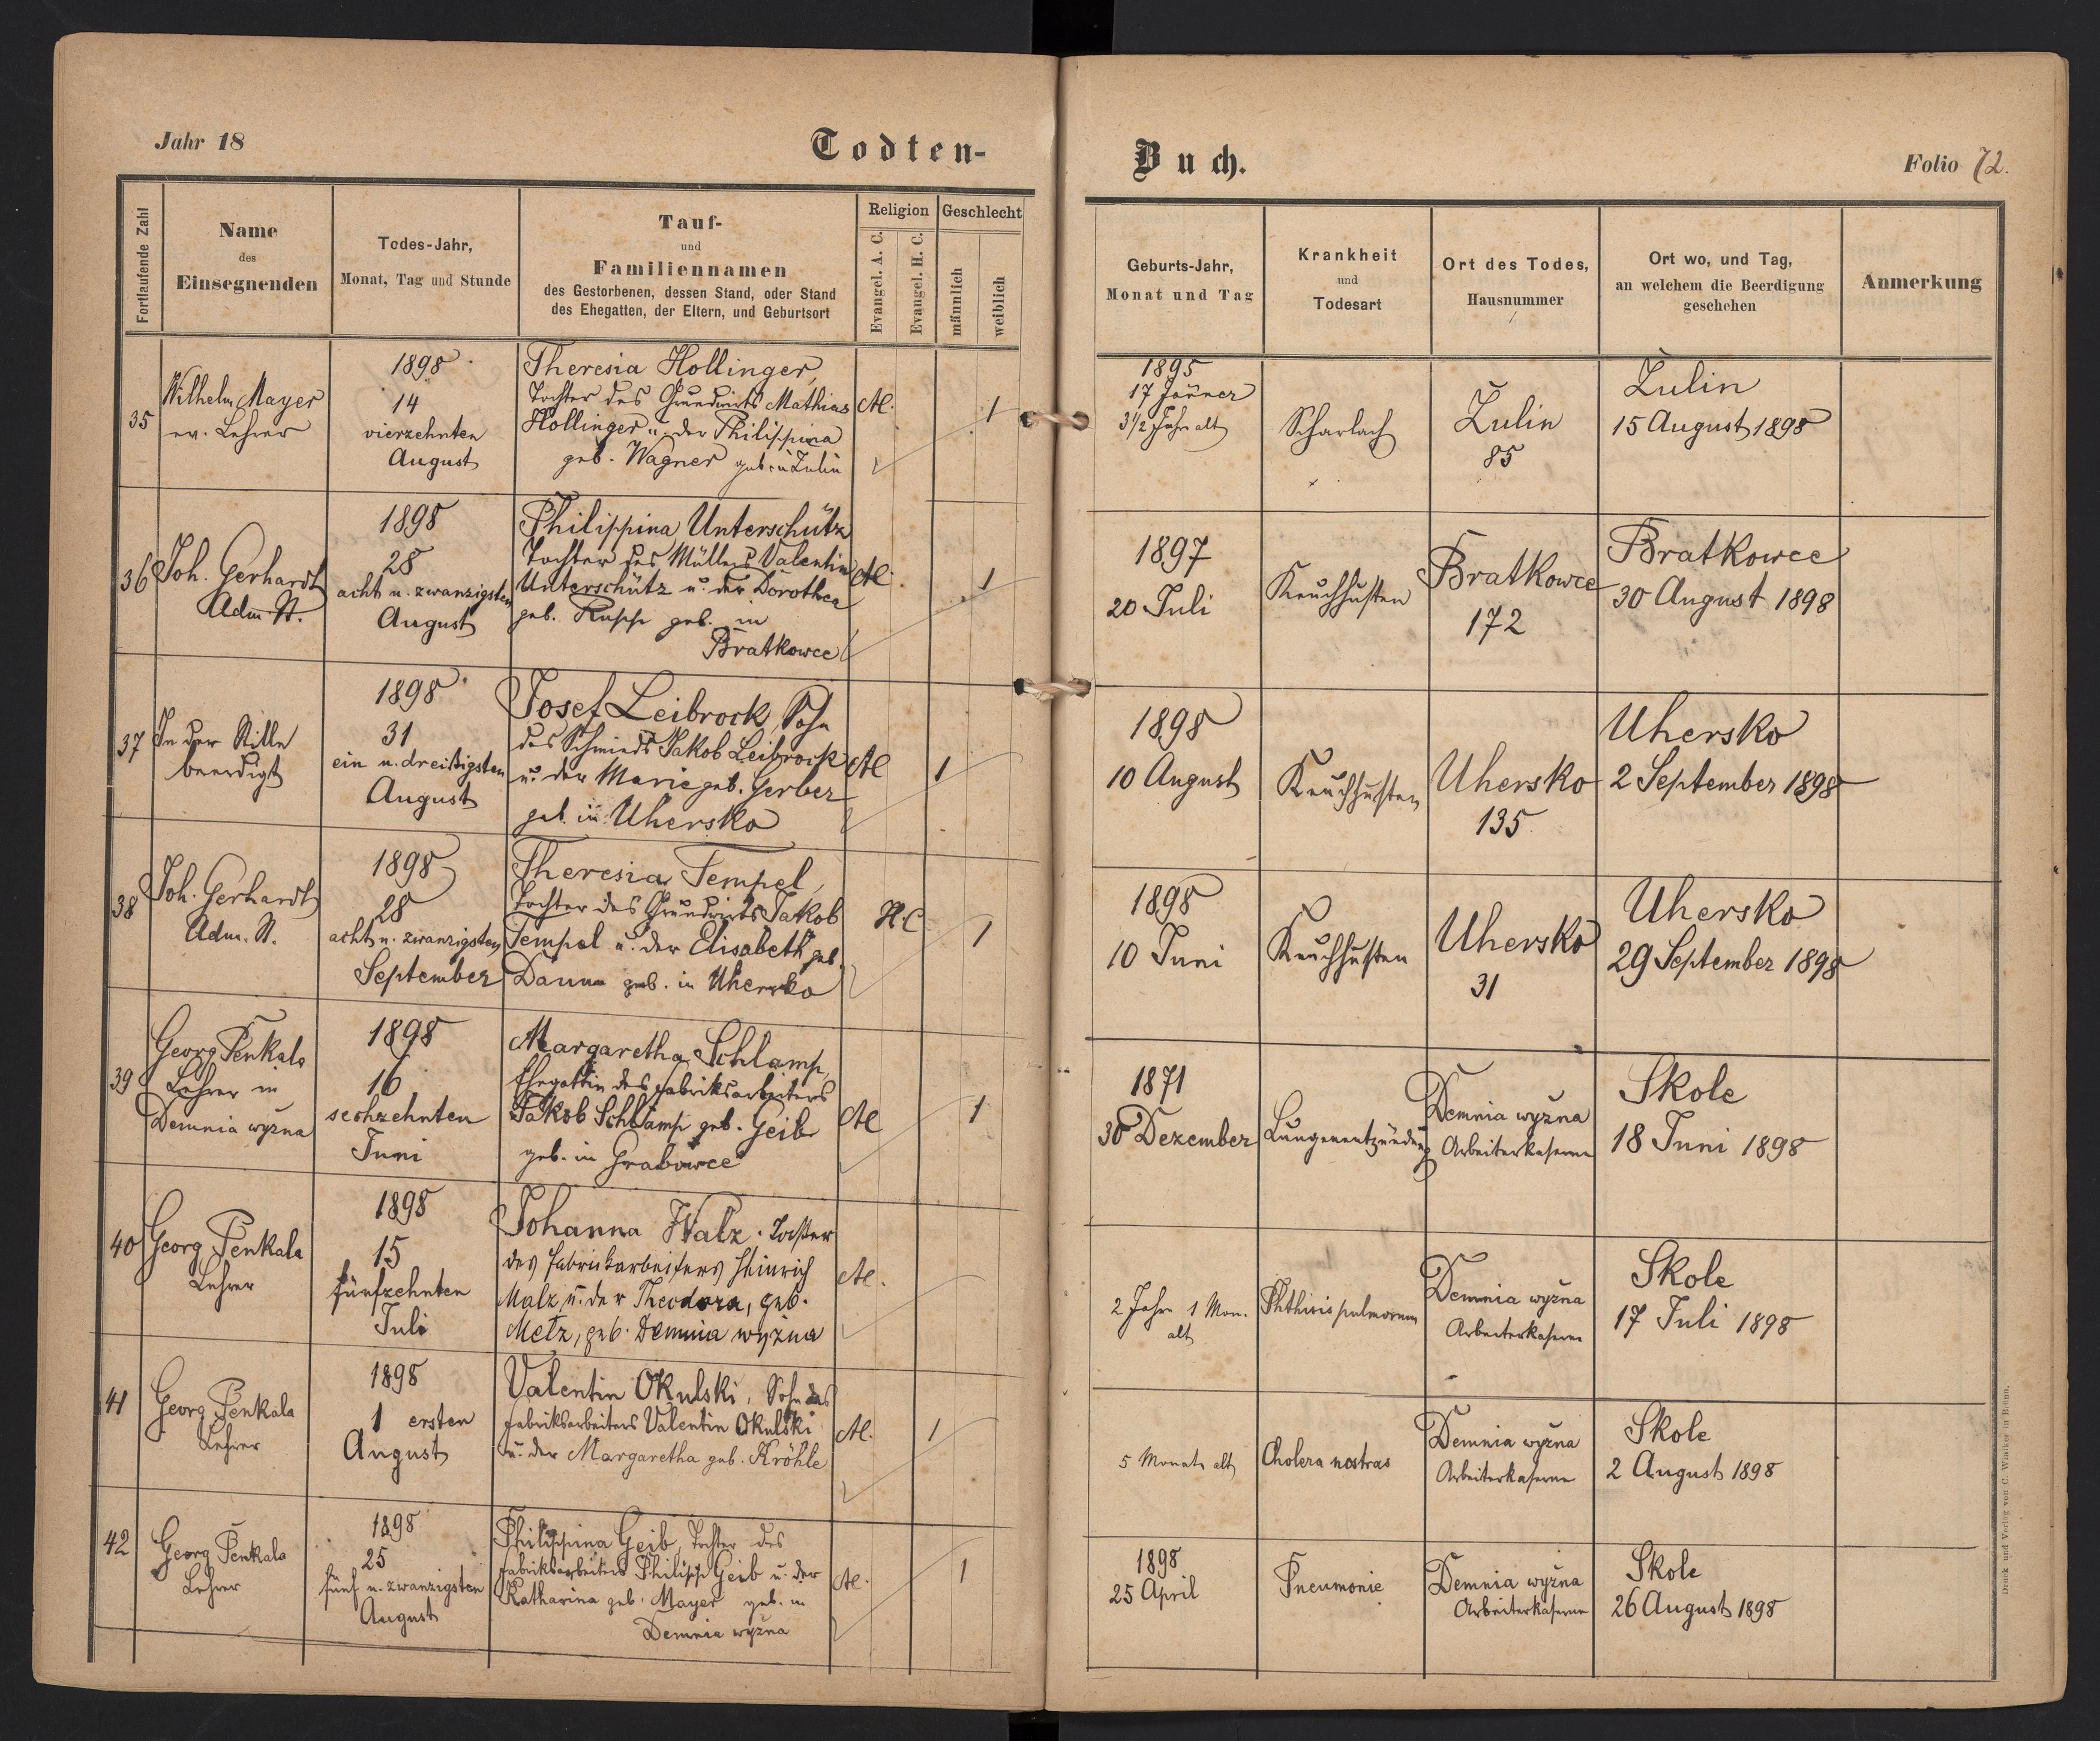 Jahr 18
Todten-
Fortlaufende Zahl
Name
des
Einsegnenden
Todes-Jahr,
Monat, Tag und Stunde
Tauf-
und
Familiennamen
des Gestorbenen, dessen Stand, oder Stand
des Ehegatten, der Eltern, und Geburtsort
Religion
Evangel. A. C.
Evangel. H. C.
Geschlecht
männlich
weiblich
35
Wilhelm Mayer
ev. Lehrer
1898
14
vierzehnten
August
Theresia Hollinger,
Tochter des Grundwirts Mathias
Hollinger u. der Philippina
geb. Wagner geb. in Zulin
AC.
1
36
Joh. Gerhardt
Adm. St.
1898
28
acht u. zwanzigsten
August
Philippina Unterschütz
Tochter des Müllers Valentin
Unterschütz u. der Dorothea
geb. Rupp geb. in
Bratkowce
AC.
1
37
In der Stille
beerdigt
1898
31
ein u. dreißigsten
August
Josef Leibrock, Sohn
des Schmieds Jakob Leibrock
u. der Marie geb. Gerber
geb. in Uhersko
AC
1
38
Joh. Gerhardt
Adm. St.
1898
28
acht u. zwanzigsten
September
Theresia Tempel,
Tochter des Grundwirts Jakob
Tempel u. der Elisabeth geb.
Daum geb. in Uhersko
H.C.
1
39
Georg Penkala
Lehrer in
Demnia wyżna
1898
16
sechzehnten
Juni
Margaretha Schlamp,
Ehegattin des Fabriksarbeiters
Jakob Schlamp geb. Geib
geb. in Grabowce
AC
1
40
Georg Penkala
Lehrer
1898
15
fünfzehnten
Juli
Johanna Walz. Tochter
des Fabrikarbeiters Heinrich
Malz u. der Theodora, geb.
Metz, geb. Demnia wyżna
AC.
41
Georg Penkala
Lehrer
1898
1 ersten
August
Valentin Okulski, Sohn des
Fabriksarbeiters Valentin Okulski
u. der Margaretha geb. Kröhle
AC.
1
42
Georg Penkala
Lehrer
1898
25
fünf u. zwanzigsten
August
Philippina Geib, Tochter des
Fabriksarbeiters Philipp Geib u. der
Katharina geb. Mayer geb. in
Demnia wyżna
AC.
1
Buch.
Folio 72.
Geburts-Jahr,
Monat und Tag
Krankheit
und
Todesart
Ort des Todes,
Hausnummer
Ort wo, und Tag,
an welchem die Beerdigung
geschehen
Anmerkung
1895
17 Jänner
3 1/2 Jahr alt
Scharlach
Zulin
85
Zulin
15 August 1898
1897
20 Juli
Keuchhusten
Bratkowce
172
Bratkowce
30 August 1898
1898
10 August
Keuchhusten
Uhersko
135
Uhersko
2 September 1898
1898
10 Juni
Keuchhusten
Uhersko
31
Uhersko
29 September 1898
1871
30 Dezember
Lungenentzündung
Demnia wyżna
Arbeiterkaserne
Skole
18 Juni 1898
2 Jahre 1 Mon.
alt
Phthisis pulmonum
Demnia wyżna
Arbeiterkaserne
Skole
17 Juli 1898
5 Monate alt
Cholera nostras
Demnia wyżna
Arbeiterkaserne
Skole
2 August 1898
1898
25 April
Pneumonie
Demnia wyżna
Arbeiterkaserne
Skole
26 August 1898
Druck und Verlag von C. Winiker in Brünn.